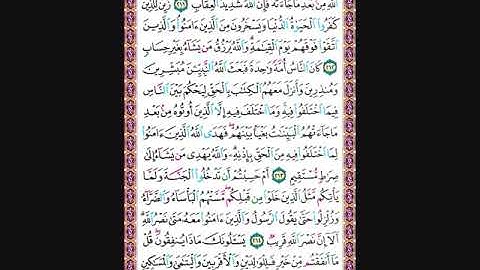 اللَّهِ مِنْ بَعْدِ مَا جَاءَتْهُ فَإِنَّ اللَّهَ شَدِيدُ الْعِقَابِ ٢١١ زُيِّنَ لِلَّذِينَ
كَفَرُوا الْحَيَوٰةُ الدُّنْيَا وَيَسْخَرُونَ مِنَ الَّذِينَ ءَامَنُوا وَالَّذِينَ
اتَّقَوْا فَوْقَهُمْ يَوْمَ الْقِيَٰمَةِ وَاللَّهُ يَرْزُقُ مَنْ يَشَاءُ بِغَيْرِ حِسَابٍ
٢١٢ كَانَ النَّاسُ أُمَّةً وَٰحِدَةً فَبَعَثَ اللَّهُ النَّبِيِّنَ مُبَشِّرِينَ
وَمُنْذِرِينَ وَأَنْزَلَ مَعَهُمُ الْكِتَٰبَ بِالْحَقِّ لِيَحْكُمَ بَيْنَ النَّاسِ
فِيمَا اخْتَلَفُوا فِيهِ وَمَا اخْتَلَفَ فِيهِ إِلَّا الَّذِينَ أُوتُوهُ مِنْ بَعْدِ
مَا جَاءَتْهُمُ الْبَيِّنَٰتُ بَغْيًا بَيْنَهُمْ فَهَدَى اللَّهُ الَّذِينَ ءَامَنُوا
لِمَا اخْتَلَفُوا فِيهِ مِنَ الْحَقِّ بِإِذْنِهِ وَاللَّهُ يَهْدِي مَنْ يَشَاءُ إِلَىٰ
صِرَٰطٍ مُسْتَقِيمٍ ٢١٣ أَمْ حَسِبْتُمْ أَنْ تَدْخُلُوا الْجَنَّةَ وَلَمَّا
يَأْتِكُمْ مَثَلُ الَّذِينَ خَلَوْا مِنْ قَبْلِكُمْ مَسَّتْهُمُ الْبَأْسَاءُ وَالضَّرَّاءُ
وَزُلْزِلُوا حَتَّىٰ يَقُولَ الرَّسُولُ وَالَّذِينَ ءَامَنُوا مَعَهُ مَتَىٰ نَصْرُ اللَّهِ
أَلَا إِنَّ نَصْرَ اللَّهِ قَرِيبٌ ٢١٤ يَسْـَٔلُونَكَ مَاذَا يُنْفِقُونَ قُلْ
مَا أَنْفَقْتُمْ مِنْ خَيْرٍ فَلِلْوَٰلِدَيْنِ وَالْأَقْرَبِينَ وَالْيَتَٰمَىٰ وَالْمَسَٰكِينِ